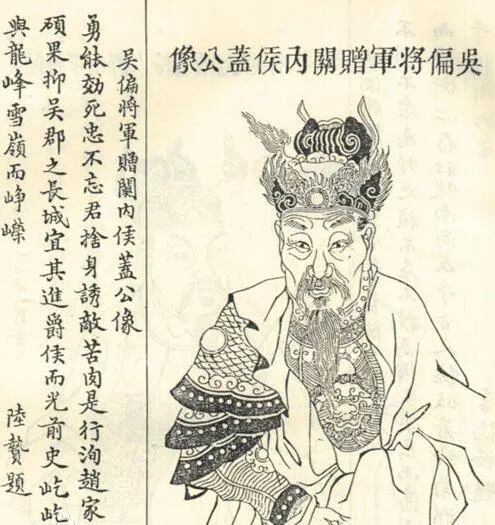 吳偏将軍贈關內侯蓋公像
吳偏將軍贈關內侯蓋公像
勇能効死忠不忘君捨身誘敵苦肉是行洵趙家
碩果抑吳郡之長城宜其進爵侯而光前史屹屹
與龍峰雪嶺而崢嶸
陸贄題